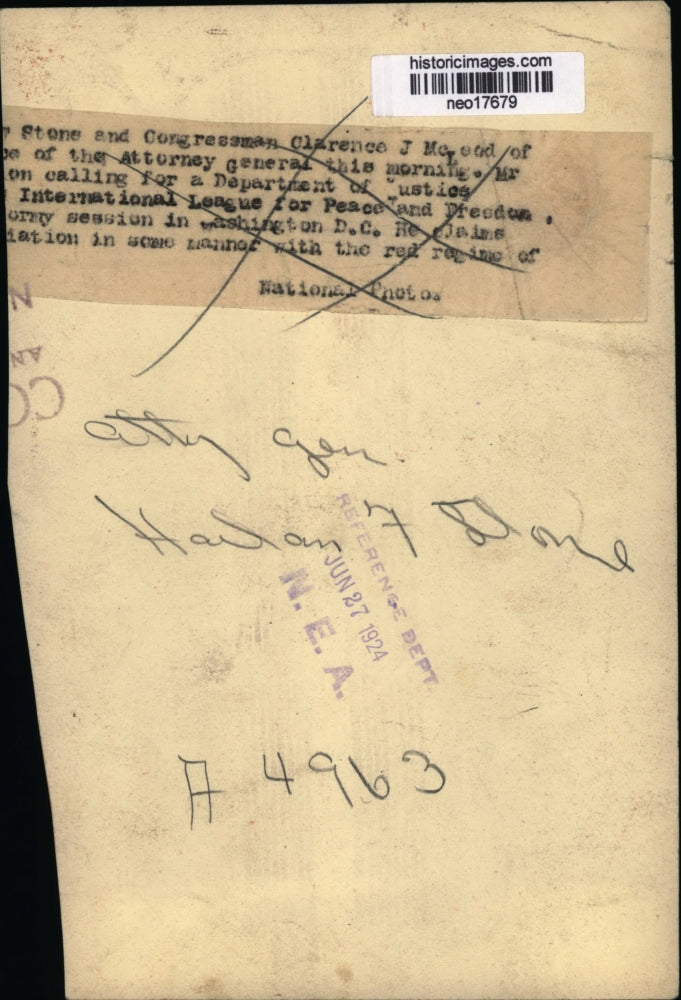 historicimages.com
neo17679
r Stone and Congressman Clarence J McLeod of
ce of the Attorney general this morning. Mr
on calling for a Department of Justice
International League for Peace and Freedom .
ormy session in Washington D.C. He claims
iation in some manner with the red regime of
National Photo.
N
AN
CO
Atty Gen.
Harlan F Stone
REFERENCE DEPT.
JUN 27 1924
N. E. A.
A 4963